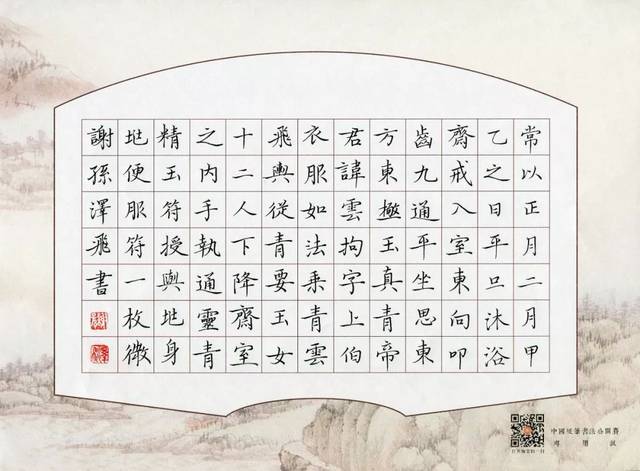 常以正月二月甲
乙之日平旦沐浴
齋戒入室東向叩
齒九通平坐思東
方東極玉真青帝
君諱雲拘字上伯
衣服如法乘青雲
飛輿從青要玉女
十二人下降齋室
之内手執通靈青
精玉符授與地身
地便服符一枚微
謝孫澤飛書
中國硬筆書法公開賽
專用紙